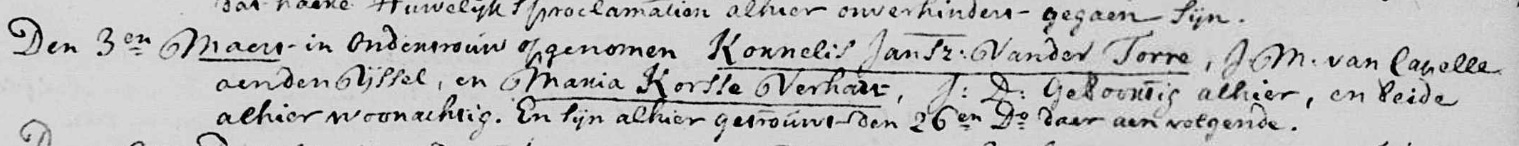 dat haere Huwelijks proclamatien alhier onverhindert gegaen sijn.
Den 3en Maert in Ondertrouw opgenomen Kornelis Jansz: Vander Torre, J. M. van Capelle
aenden Yssel, en Maria Korsse Verhart, J: D: Geboortig alhier, en beide
alhier woonachtig. En sijn alhier getrouwt den 26en Do daer aen volgende.